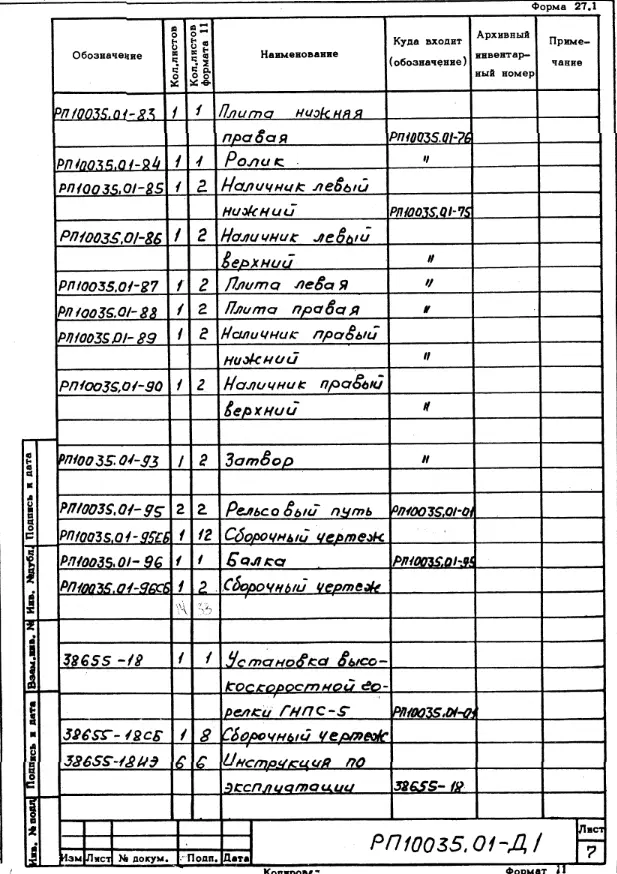 Форма 27.1
Обозначение Кол.листов Кол.листов формата 11 Наименование Куда входит (обозначение) Архивный инвентар-ный номер Приме-чание
РП10035.01-83 1 1 Плита нижняя
правая РП10035.01-76
РП10035.01-84 1 1 Ролик "
РП10035.01-85 1 2 Наличник левый
нижний РП10035.01-75
РП10035.01-86 1 2 Наличник левый
верхний "
РП10035.01-87 1 2 Плита левая "
РП10035.01-88 1 2 Плита правая "
РП10035.01-89 1 2 Наличник правый
нижний "
РП10035.01-90 1 2 Наличник правый
верхний "
РП10035.01-93 1 2 Затвор "
РП10035.01-95 2 2 Рельсовый путь РП10035.01-01
РП10035.01-95СБ 1 12 Сборочный чертеж
РП10035.01-96 1 1 Балка РП10035.01-95
РП10035.01-96СБ 1 2 Сборочный чертеж
14 33
38655-18 1 1 Установка высо-
коскоростной го-
релки ГНПС-5 РП10035.01-01
38655-18СБ 1 8 Сборочный чертеж
38655-18ИЭ 6 6 Инструкция по
эксплуатации 38655-18
Инв. № подл Подпись и дата Взам.инв. № Инв. №дубл. Подпись и дата
Изм Лист № докум. Подп. Дата
РП10035.01-Д1
Лист
7
Копировал Формат 11